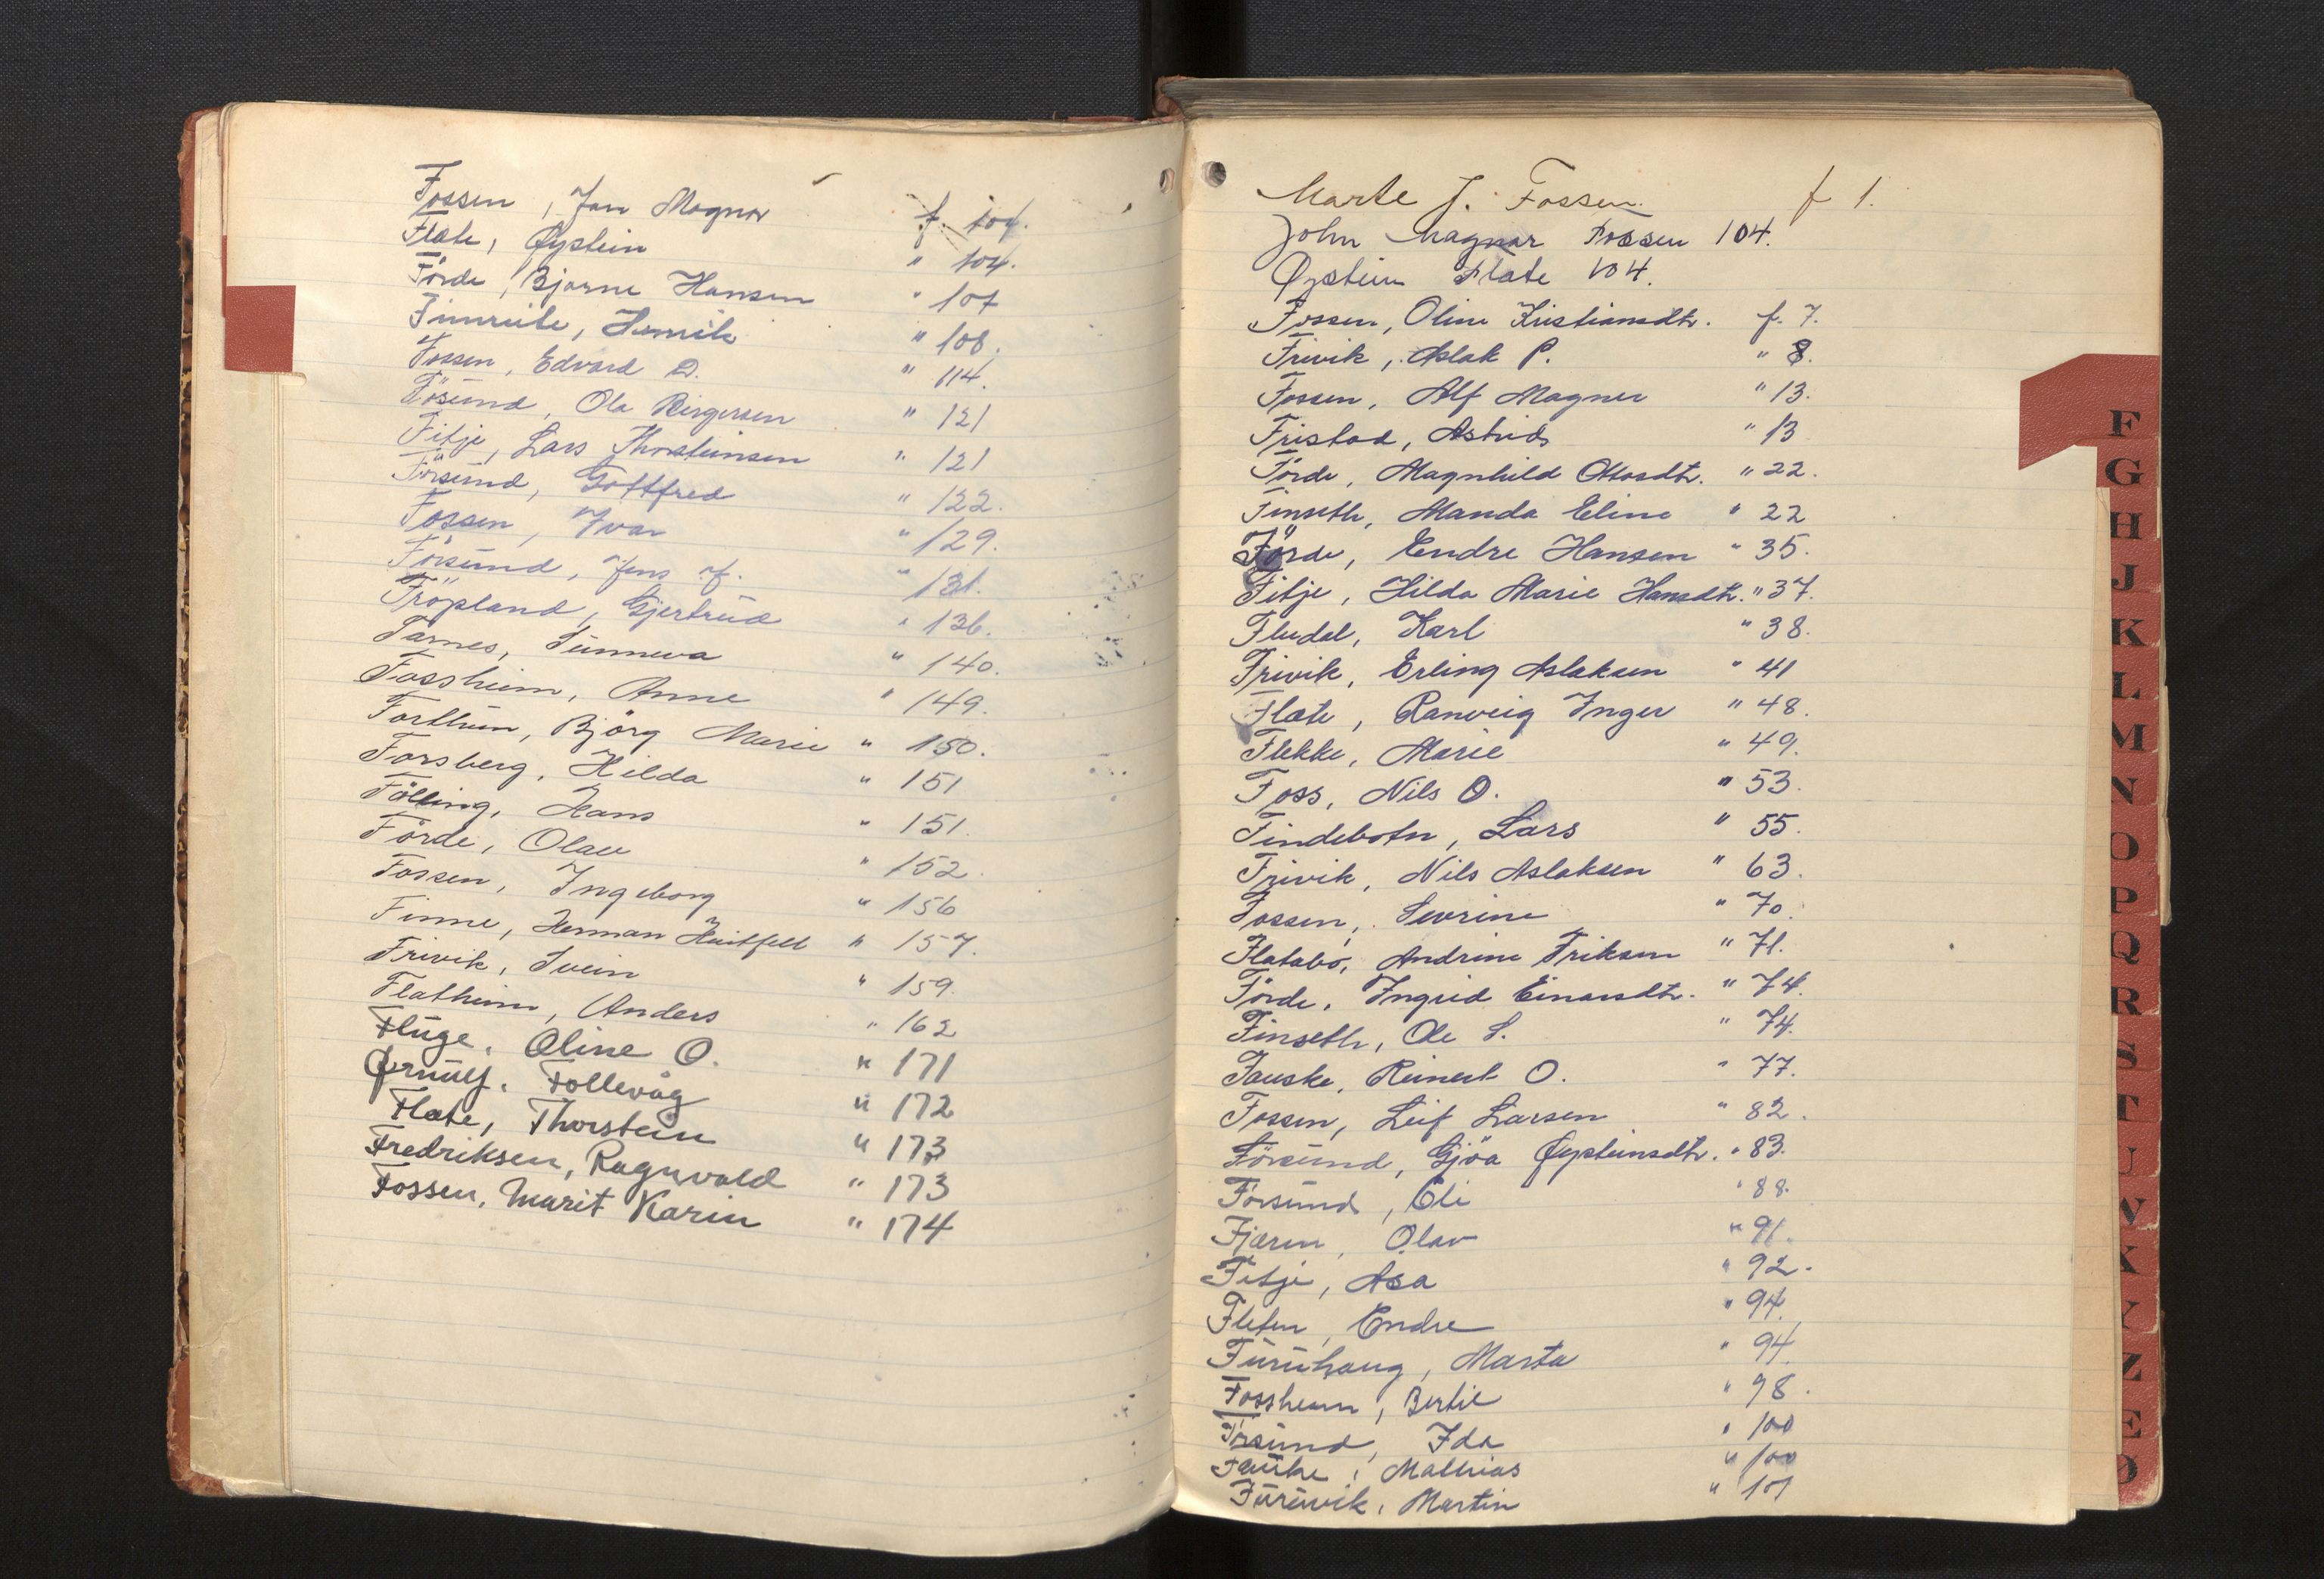 Fossen, Jan Magnar f. 104.
Flate, Øystein " 104.
Förde, Bjarne Hansen " 107
Finnreite, Henrik " 108.
Fossen, Edvard D. " 114.
Fösund, Ola Birgersen " 121
Fitje, Lars Thorsteinsen " 121
Försund, Gottfred " 122.
Fossen, Ivar " 129.
Försund, Jens J. " 131.
Fröpland, Gjertrud " 136.
Farnes, Sunneva " 140.
Fossheim, Anne " 149.
Forthun, Björg Marie " 150.
Forsberg, Hilda " 151
Fölling, Hans " 151.
Förde, Olav " 152.
Fossen, Ingeborg " 156
Finne, Herman Huitfelt " 157.
Frivik, Svein " 159.
Flatheim, Anders " 162
Fluge, Oline O. " 171
Ørnulf, Follevåg " 172
Flate, Thorstein " 173
Fredriksen, Ragnvald " 173
Fossen, Marit Karin " 174
Marte J. Fossen. f 1.
John Magnar Fossen 104.
Øystein Flate 104.
Fossen, Oline Kristiansdtr. f. 7.
Frivik, Aslak P. " 8.
Fossen, Alf Magner " 13.
Fristad, Astrid " 13
Förde, Magnhild Ottosdtr. " 22.
Finseth, Manda Eline " 22
Förde, Endre Hansen " 35.
Fitje, Hilda Marie Hansdtr. " 37.
Fludal, Karl " 38.
Frivik, Erling Aslaksen " 41
Flate, Ranveig Inger " 48.
Flekke, Marie " 49.
Foss, Nils O. " 53.
Findebotn, Lars " 55.
Frivik, Nils Aslaksen " 63.
Fossen, Sevrine " 70.
Flatabö, Andrine Eriksen " 71.
Förde, Ingrid Einarsdtr. " 74.
Finseth, Ole S. " 74.
Fauske, Reinert O. " 77.
Fossen, Leif Larsen " 82.
Försund, Gjöa Øysteinsdtr. " 83.
Forsund, Eli " 88.
Fjæren, Olav " 91.
Fitje, Asa " 92.
Fleten, Endre " 94.
Furuhaug, Marta " 94.
Fossheim, Bertil " 98.
Försund, Ida " 100
Fauske, Mathias " 100
Furevik, Martin " 101
F
G
H
J
K
L
M
N
O
P
Q
R
S
T
U
V
X
Y
Z
Æ
Ø